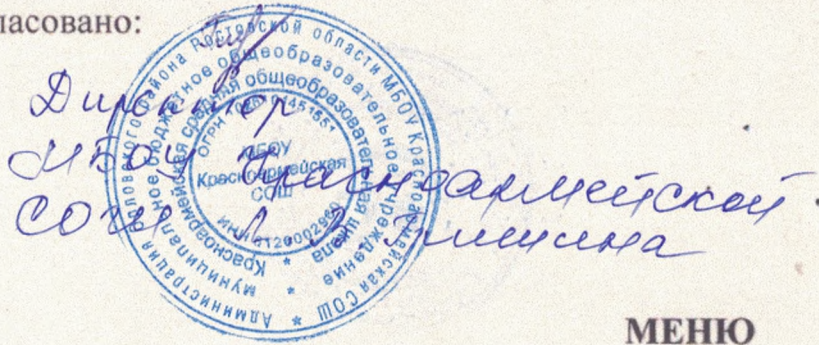 ласовано:
Директор
МБОУ Красноармейской
СОШ
Администрация ловского района Ростовской области МБОУ Красноармейская СОШ
муниципальное бюджетное общеобразовательное учреждение
Красноармейская средняя общеобразовательная школа
ОГРН
ИНН 6120002960
МБОУ
Красноармейская
СОШ
МЕНЮ